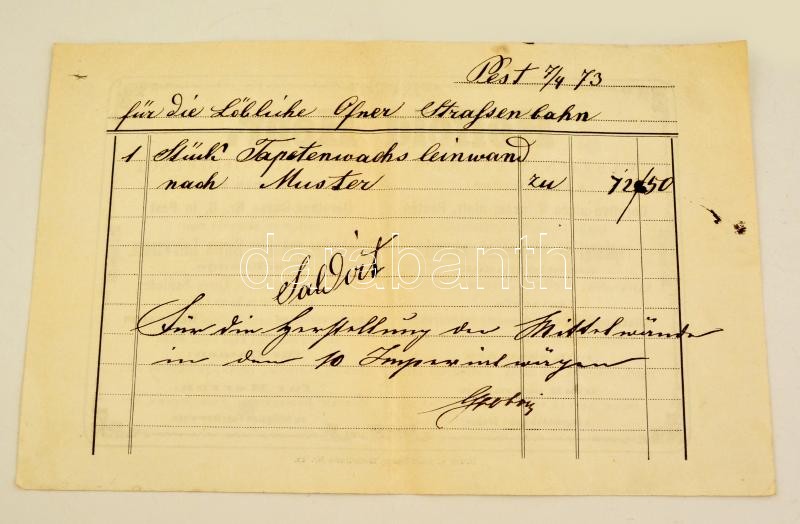 Pest 7/4 73
für die Löbliche Ofner Strassenbahn
1 Stück Tapetenwachsleinwand
nach Muster zu 12 50
Saldirt
darabanth
Für die Herstellung der Mittelwände
in den 10 Imperialwägen